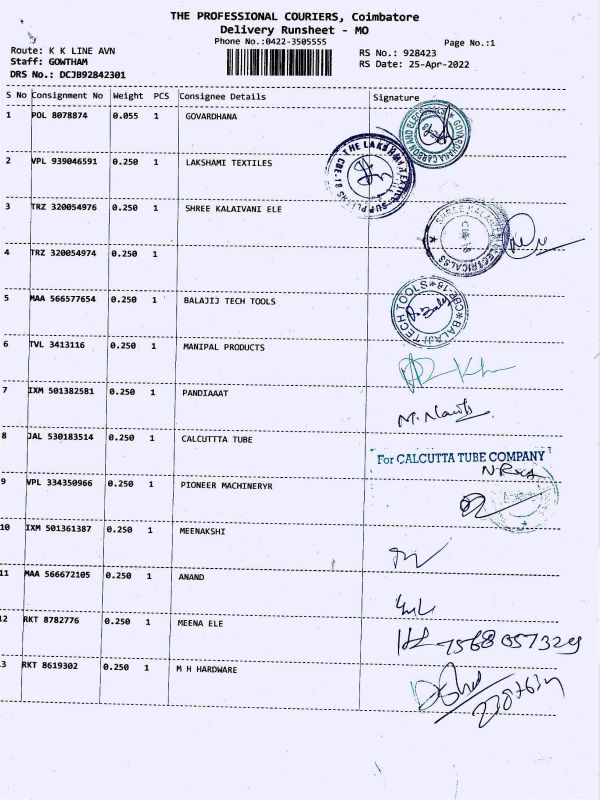 THE PROFESSIONAL COURIERS, Coimbatore
Delivery Runsheet - MO
Phone No.:0422-3505555
Page No.:1
Route: K K LINE AVN
RS No.: 928423
Staff: GOWTHAM
RS Date: 25-Apr-2022
DRS No.: DCJB92842301
S No Consignment No Weight PCS Consignee Details Signature
1 POL 8078874 0.055 1 GOVARDHANA
2 VPL 939046591 0.250 1 LAKSHAMI TEXTILES
3 TRZ 320054976 0.250 1 SHREE KALAIVANI ELE
4 TRZ 320054974 0.250 1
5 MAA 566577654 0.250 1 BALAJIJ TECH TOOLS
BALAJI TECH TOOLS * CBE-18 *
6 TVL 3413116 0.250 1 MANIPAL PRODUCTS
7 IXM 501382581 0.250 1 PANDIAAAT
8 JAL 530183514 0.250 1 CALCUTTTA TUBE
For CALCUTTA TUBE COMPANY
9 VPL 334350966 0.250 1 PIONEER MACHINERYR
10 IXM 501361387 0.250 1 MEENAKSHI
11 MAA 566672105 0.250 1 ANAND
12 RKT 8782776 0.250 1 MEENA ELE
13 RKT 8619302 0.250 1 M H HARDWARE